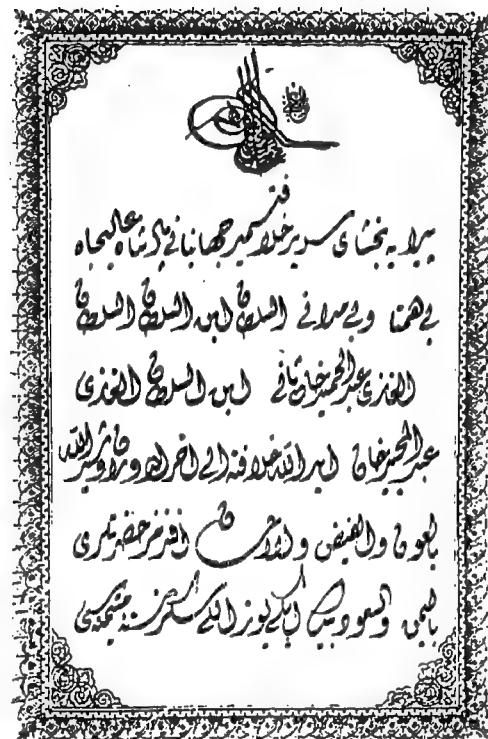 پیرایه بخشای سریر خلافت سمیر جهانبانی پادشاه عالیجاه
بی همتا و بی مدانی السلطان ابن السلطان السلطان
الغازی عبدالحمید خان ثانی ابن السلطان الغازی
عبدالمجید خان اید الله خلافته الی اخر الدوران الله
بالعون والفیض والاحسان افندمز حضرتلری
بالیمن والسعود بیك ایکی یوز اللی سکز